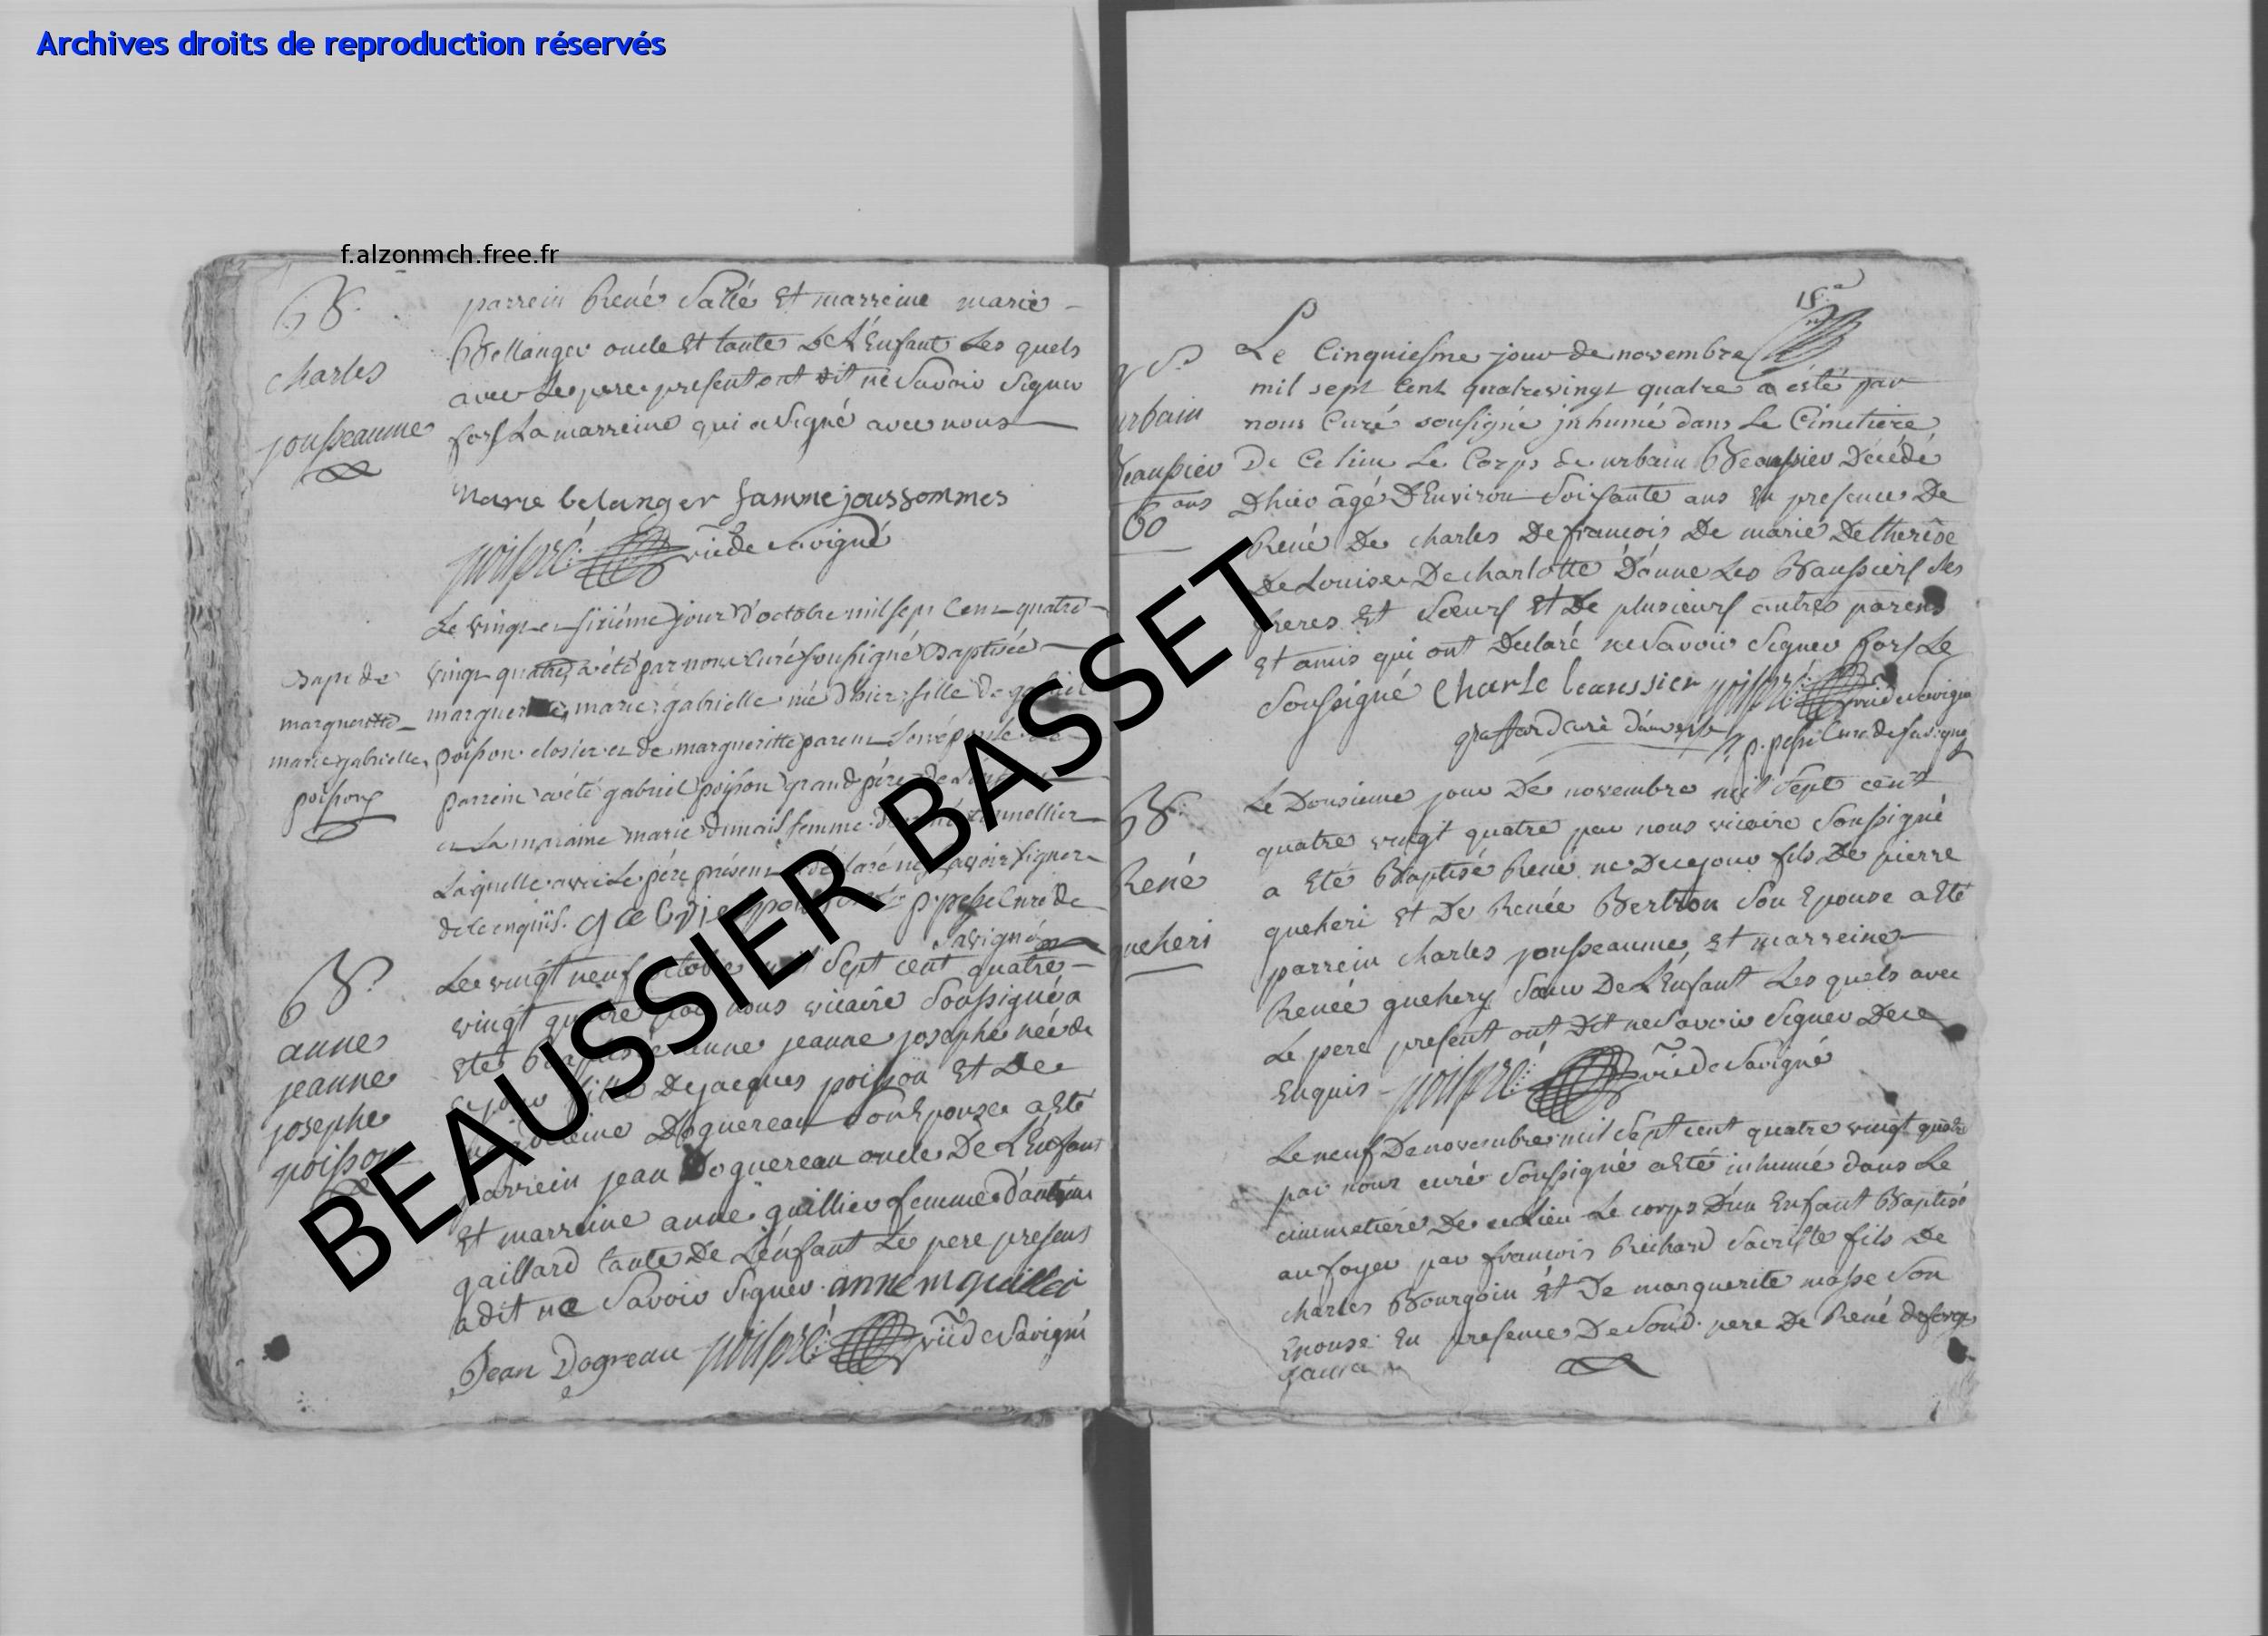 Archives droits de reproduction réservés
f.alzonmch.free.fr
BEAUSSIER BASSET
B.
charles
jousseaume
parrein René Sallé Et marreine marie
Bellanger oncle Et tante De L'Enfant Les quels
avec Le pere present ont dit ne Savoir Signer
fors La marreine qui a Signé avec nous
Marie belanger famme joussommes
vic de Savigné
Bapt de
margueritte
marie gabrielle
poisson
Le vingt et sixiéme jour d'octobre mil sept Cent quatre
vingt quatre a été par nous Curé soussigné Baptisée
marie gabrielle née d'hier fille de gabriel
poisson closier et de margueritte parent Son épouse Le
parrein a été gabriel poisson grand pére de
et La maraine marie dumais femme tonnellier
Laquelle avec Le pére présent déclaré ne Savoir signer
de ce enquis. p. pehu Curé de
Savigné
B.
anne
jeanne
josephe
poisson
Le vingt neuf octobre mil Sept cent quatre
vingt quatre par nous vicaire Soussigné a
Eté Baptisée anne jeanne josephe née de
ce jour fille De jacques poisson Et De
Doguereau Son Epouse a Eté
parrein jean Doguereau oncle De L'Enfant
Et marreine anne guillier femme d'antoine
gaillard tante De L'enfant Le pere present
a dit ne Savoir Signer. anne m guillei
Jean Dogreau vic de Savigné
urbain
Beaussier
60 ans
Le Cinquiesme jour de novembre
mil sept Cent quatrevingt quatre a esté par
nous Curé sousigné inhumé dans Le Cimetiere
De Ce lieu Le Corps de urbain Beaussier Décédé
D'hier âgé D'Environ Soissante ans En presence De
René De charles De francois De marie De therese
De Louise De charlotte D'anne Les Baussiers Ses
freres Et Soeurs Et De plusieurs autres parens
Et amis qui ont Declaré ne Savoir Signer fors Le
Soussigné Charle beaussier vic de Savigné
graffard curé d'auverse p. pehu Curé de Savigné
B.
René
queheri
Le Dousieme jour De novembre mil Sept cent
quatre vingt quatre par nous vicaire Soussigné
a Eté Baptisé René né De ce jour fils De pierre
queheri Et De Renée Bertron Son Epouse a Eté
parrein charles jousseaume Et marreine
Renée quehery Sœur De L'Enfant Les quels avec
Le pere present ont Dit ne Savoir Signer De ce
Enquis vic de Savigné
Le neuf De novembre mil Sept cent quatre vingt quatre
par nous curé Soussigné a Eté inhumé dans Le
cimmetiére De ce Lieu Le corps D'un Enfant Baptisé
au foyer par francois Richard Sacriste fils De
charles Bourgoin Et De marguerite masse Son
Epouse En presence De Sond. pere De René